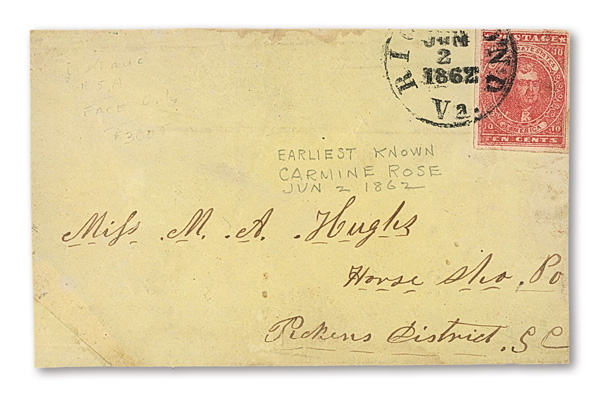 RICHMOND
JUN
2
1862
Va.
POSTAGE
10 10
AMERICA
10 10
TEN CENTS
EARLIEST KNOWN
CARMINE ROSE
JUN 2 1862
Miss. M. A. Hughs
Horse Sho. Po
Pickens District. S C